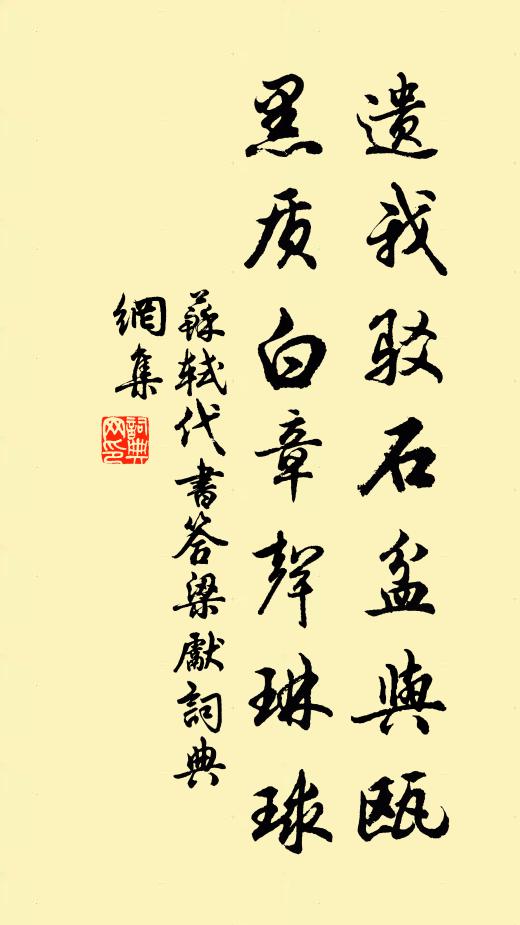 遗我驳石盆与瓯
黑质白章声琳球
苏轼代书答梁献词典
網集
詞典
网印